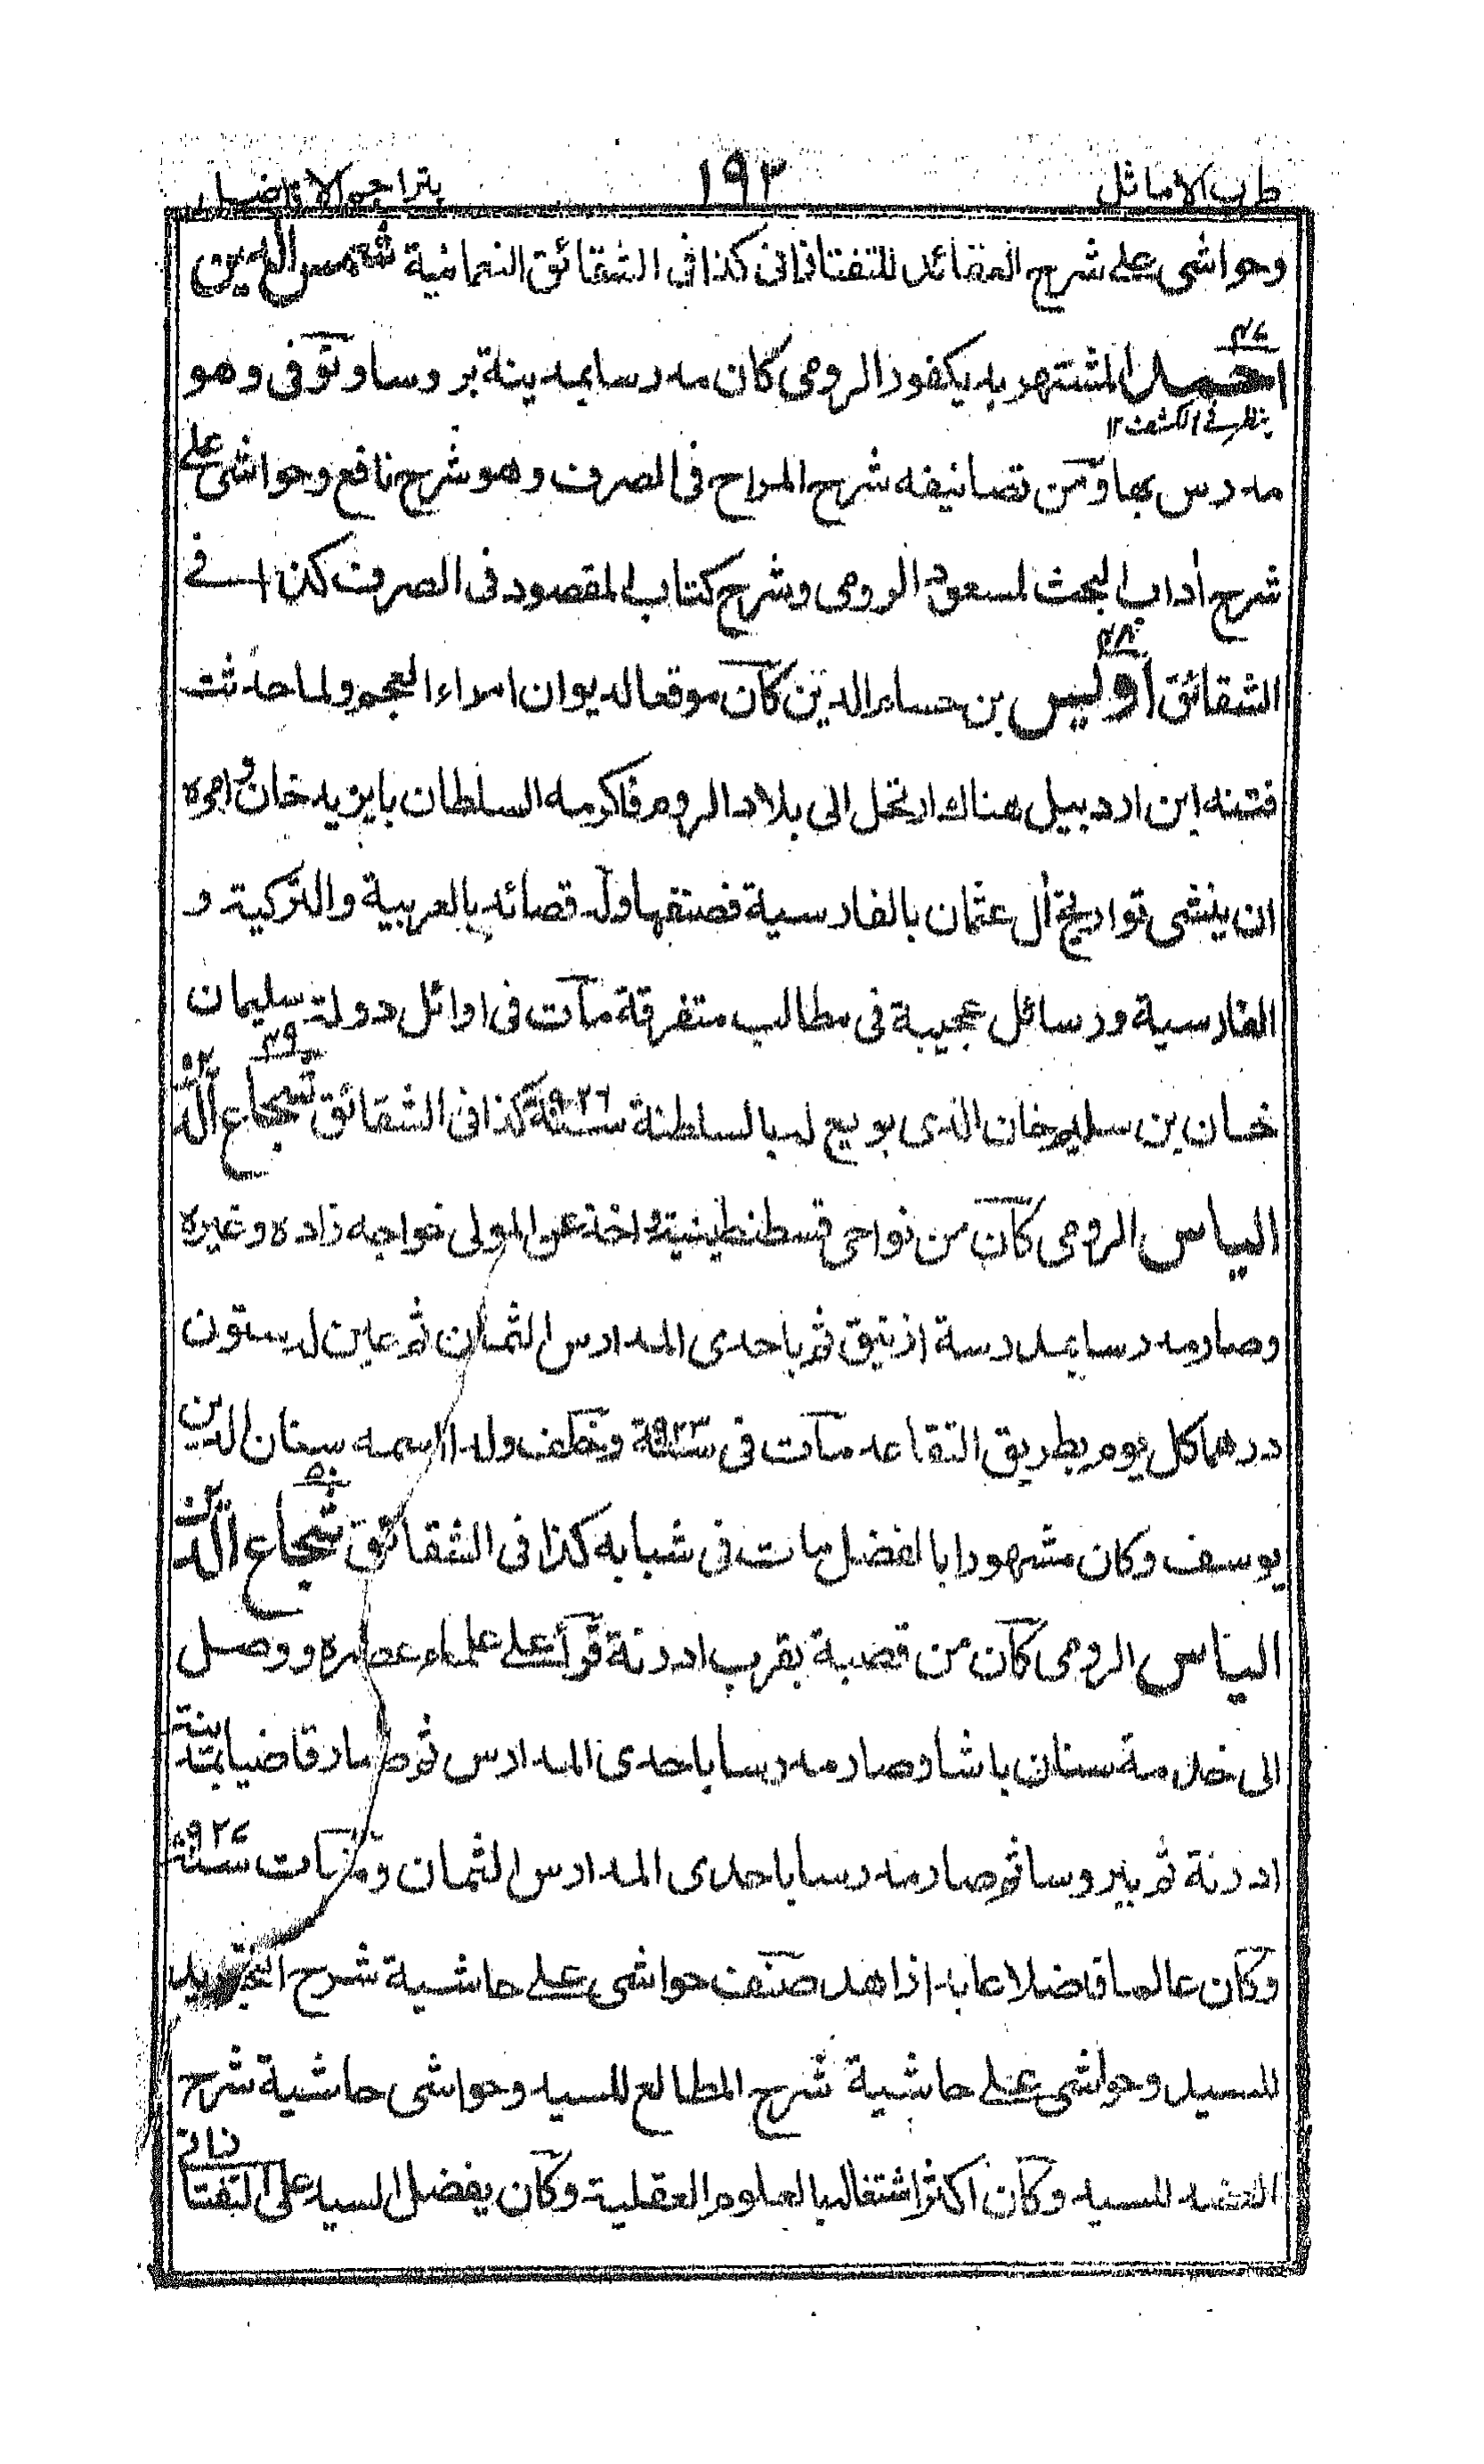 طرب الاماثل ١٩٣ بتراجم الافاضل
وحواشى على شرح العقائد للتفتازانى كذا فى الشقائق النعمانية شمس الدين
٤٧
احمد المشتهر بديكفوز الرومى كان مدرسا بمدينة بروسا وتوفى وهو
ينظر فى الكشف ١٢
مدرس بها ومن تصانيفه شرح المراح فى الصرف وهو شرح نافع وحواشى على
شرح اداب البحث لمسعود الرومى وشرح كتاب المقصود فى الصرف كذا فے
٤٨
الشقائق اوليس بن حسام الدين كان موقعا لديوان امراء العجم ولما حدثت
فتنه ابن اردبيل هناك ارتحل الى بلاد الروم فاكرمه السلطان بايزيد خان وامره
ان ينشى تواريخ أل عثمان بالفارسية فصنفها وله قصائد بالعربية والتركية و
الفارسية ورسائل عجيبة فى مطالب متفرقة مات فى اوائل دولة سليمان
٤٩
خان بن سليم خان الذى بويع له بالسلطنة سنة ٩٢٦ كذا فى الشقائق شجاع الدين
الياس الرومى كان من نواحى قسطنطينية واخذ عن المولى خواجه زاده وغيره
وصار مدرسا بمدرسة ازنيق ثم باحدى المدارس الثمان ثم عين له ستون
درهما كل يوم بطريق التقاعد مات فى سنة ٩٢٣ وخلف ولدا اسمه سنان الدين
٥٠
يوسف وكان مشهورا بالفضل مات فى شبابه كذا فى الشقائق شجاع الدين
الياس الرومى كان من قصبة بقرب ادرنة قرأ على علماء عصره ووصل
الى خدمة سنان باشا وصار مدرسا باحدى المدارس ثم صار قاضيا بمدينة
ادرنة ثم ببروسا ثم صار مدرسا باحدى المدارس الثمان ومات سنة ٩٢٤
وكان عالما فاضلا عابدا زاهدا صنف حواشى على حاشية شرح التجريد
للسيد وحواشى على حاشية شرح المطالع للسيد وحواشى حاشية شرح
العضد للسيد وكان اكثر اشتغاله بالعلوم العقلية وكان يفضل السيد على التفتازانى